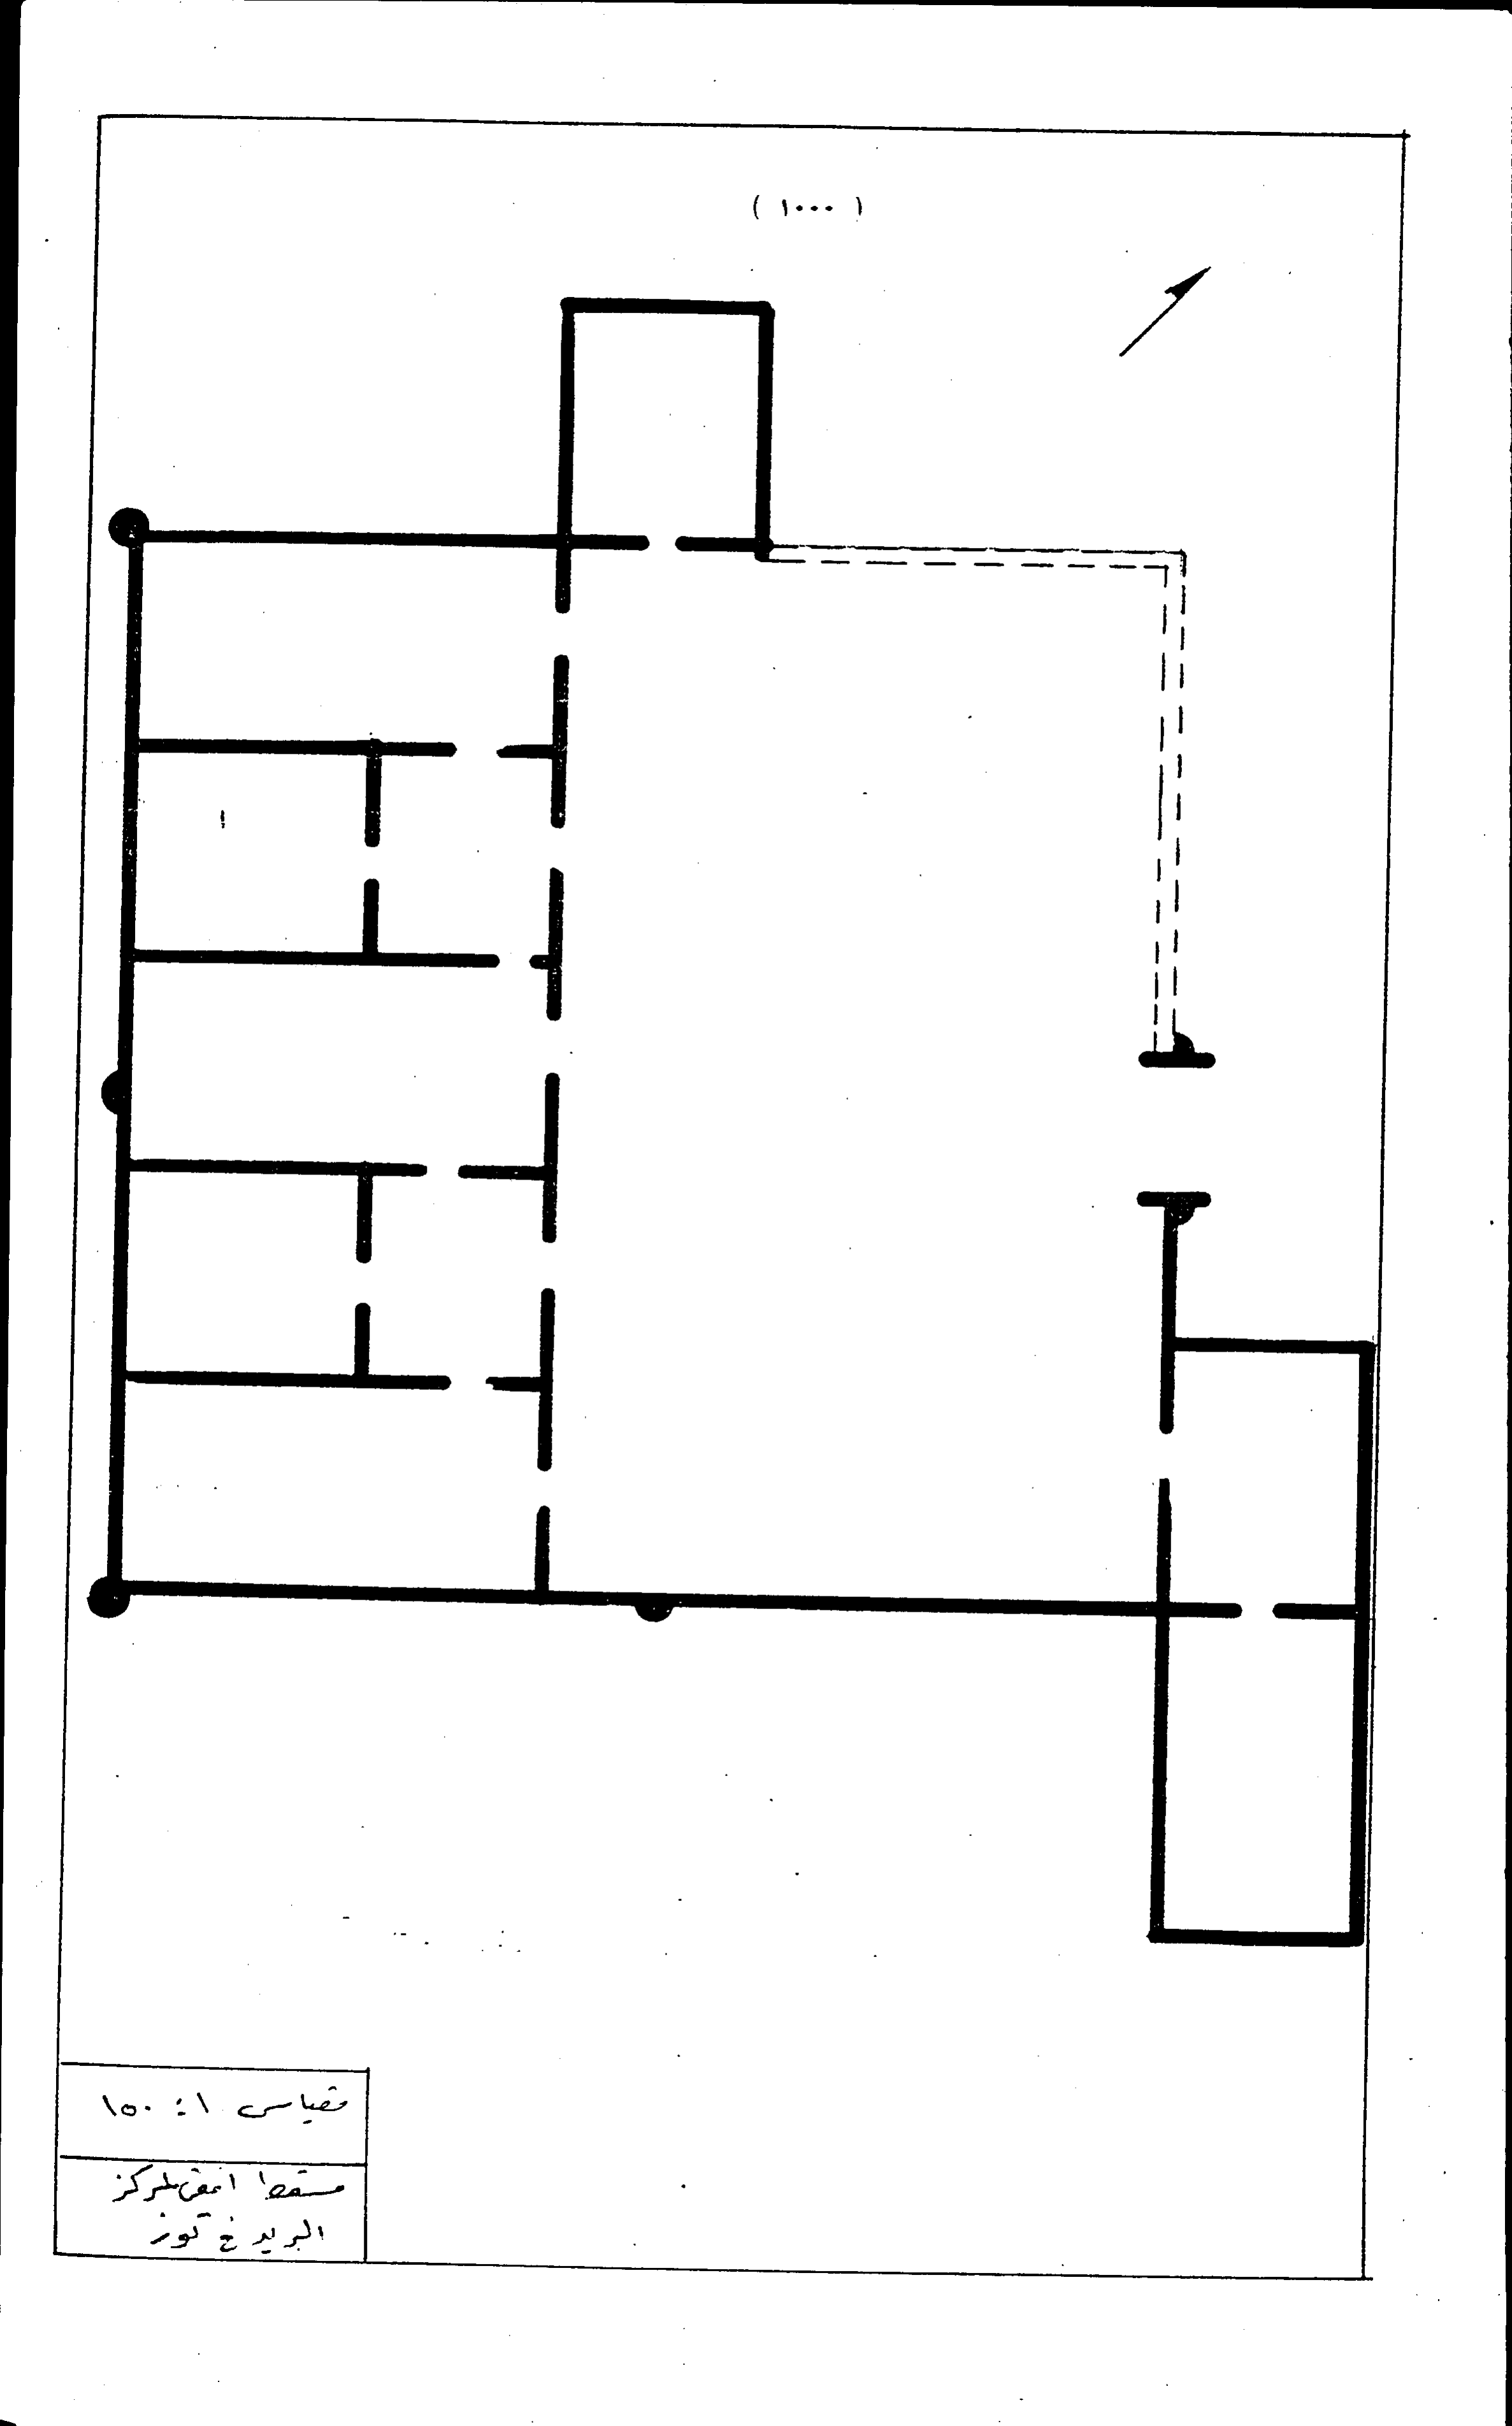 ( ١٠٠٠ )
مقياس ١ : ١٥٠
مسقط افقي لمركز
البريد في توز